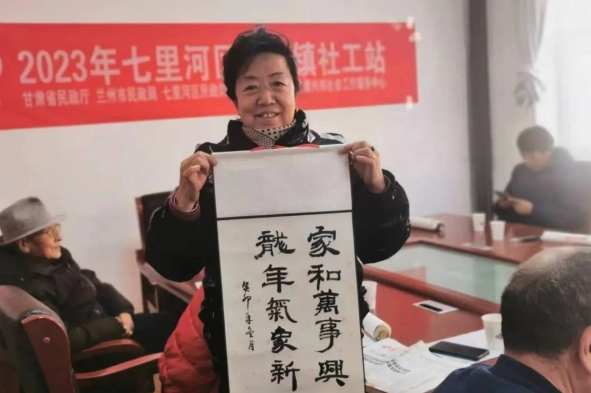 2023年七里河区 镇社工站
甘肃省民政厅 兰州市民政局 七里河区民政 社会工作服务中心
家和萬事興
龍年氣象新
癸卯